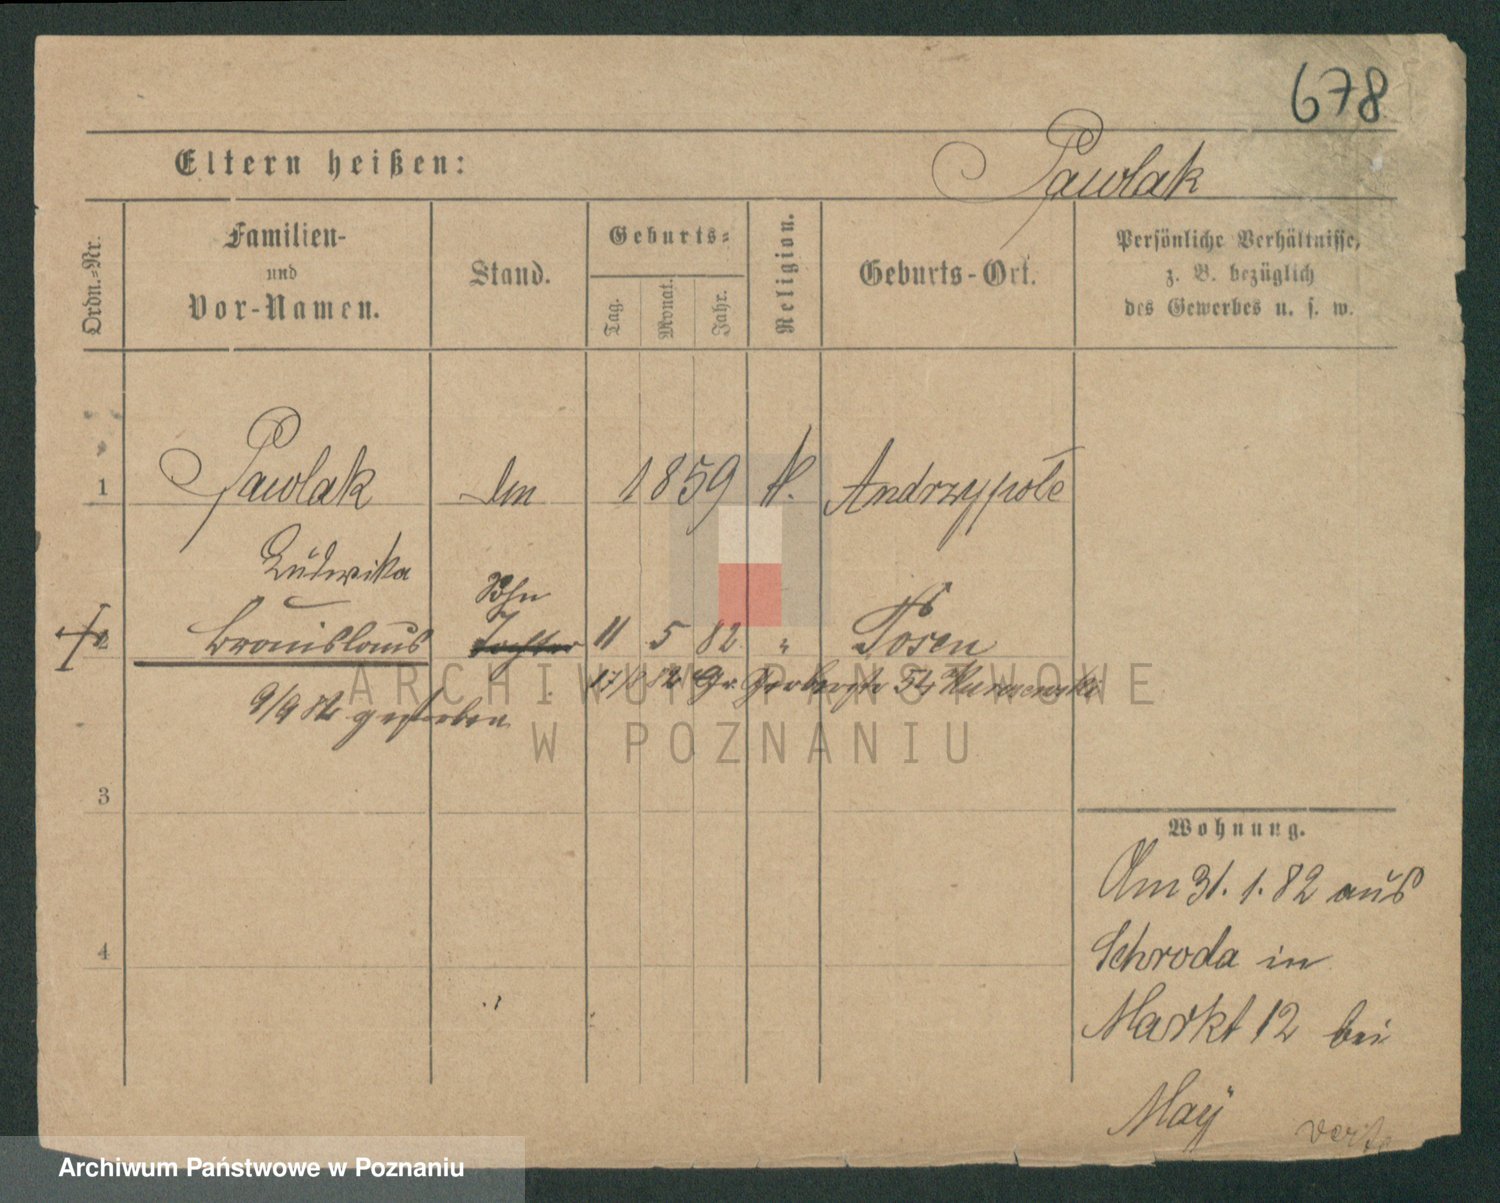 678
Eltern heißen:
Pawlak
Ordn.-Nr.
Familien-
und
Vor-Namen.
Stand.
Geburts-
Tag.
Monat.
Jahr.
Religion.
Geburts-Ort.
Persönliche Verhältnisse,
z. B. bezüglich
des Gewerbes u. s. w.
1 Pawlak 1859 K. Andrzypole
Ludwika
Sohn
2 Bronislaus Tochter 11 5 82 " Posen
17/8 82 Gr. Gerberstr 54
9/9 82 gestorben
3
4
Wohnung.
Am 31. 1. 82 aus
Schroda in
Markt 12 bei
May
verte
ARCHIWUM PAŃSTWOWE
W POZNANIU
Archiwum Państwowe w Poznaniu